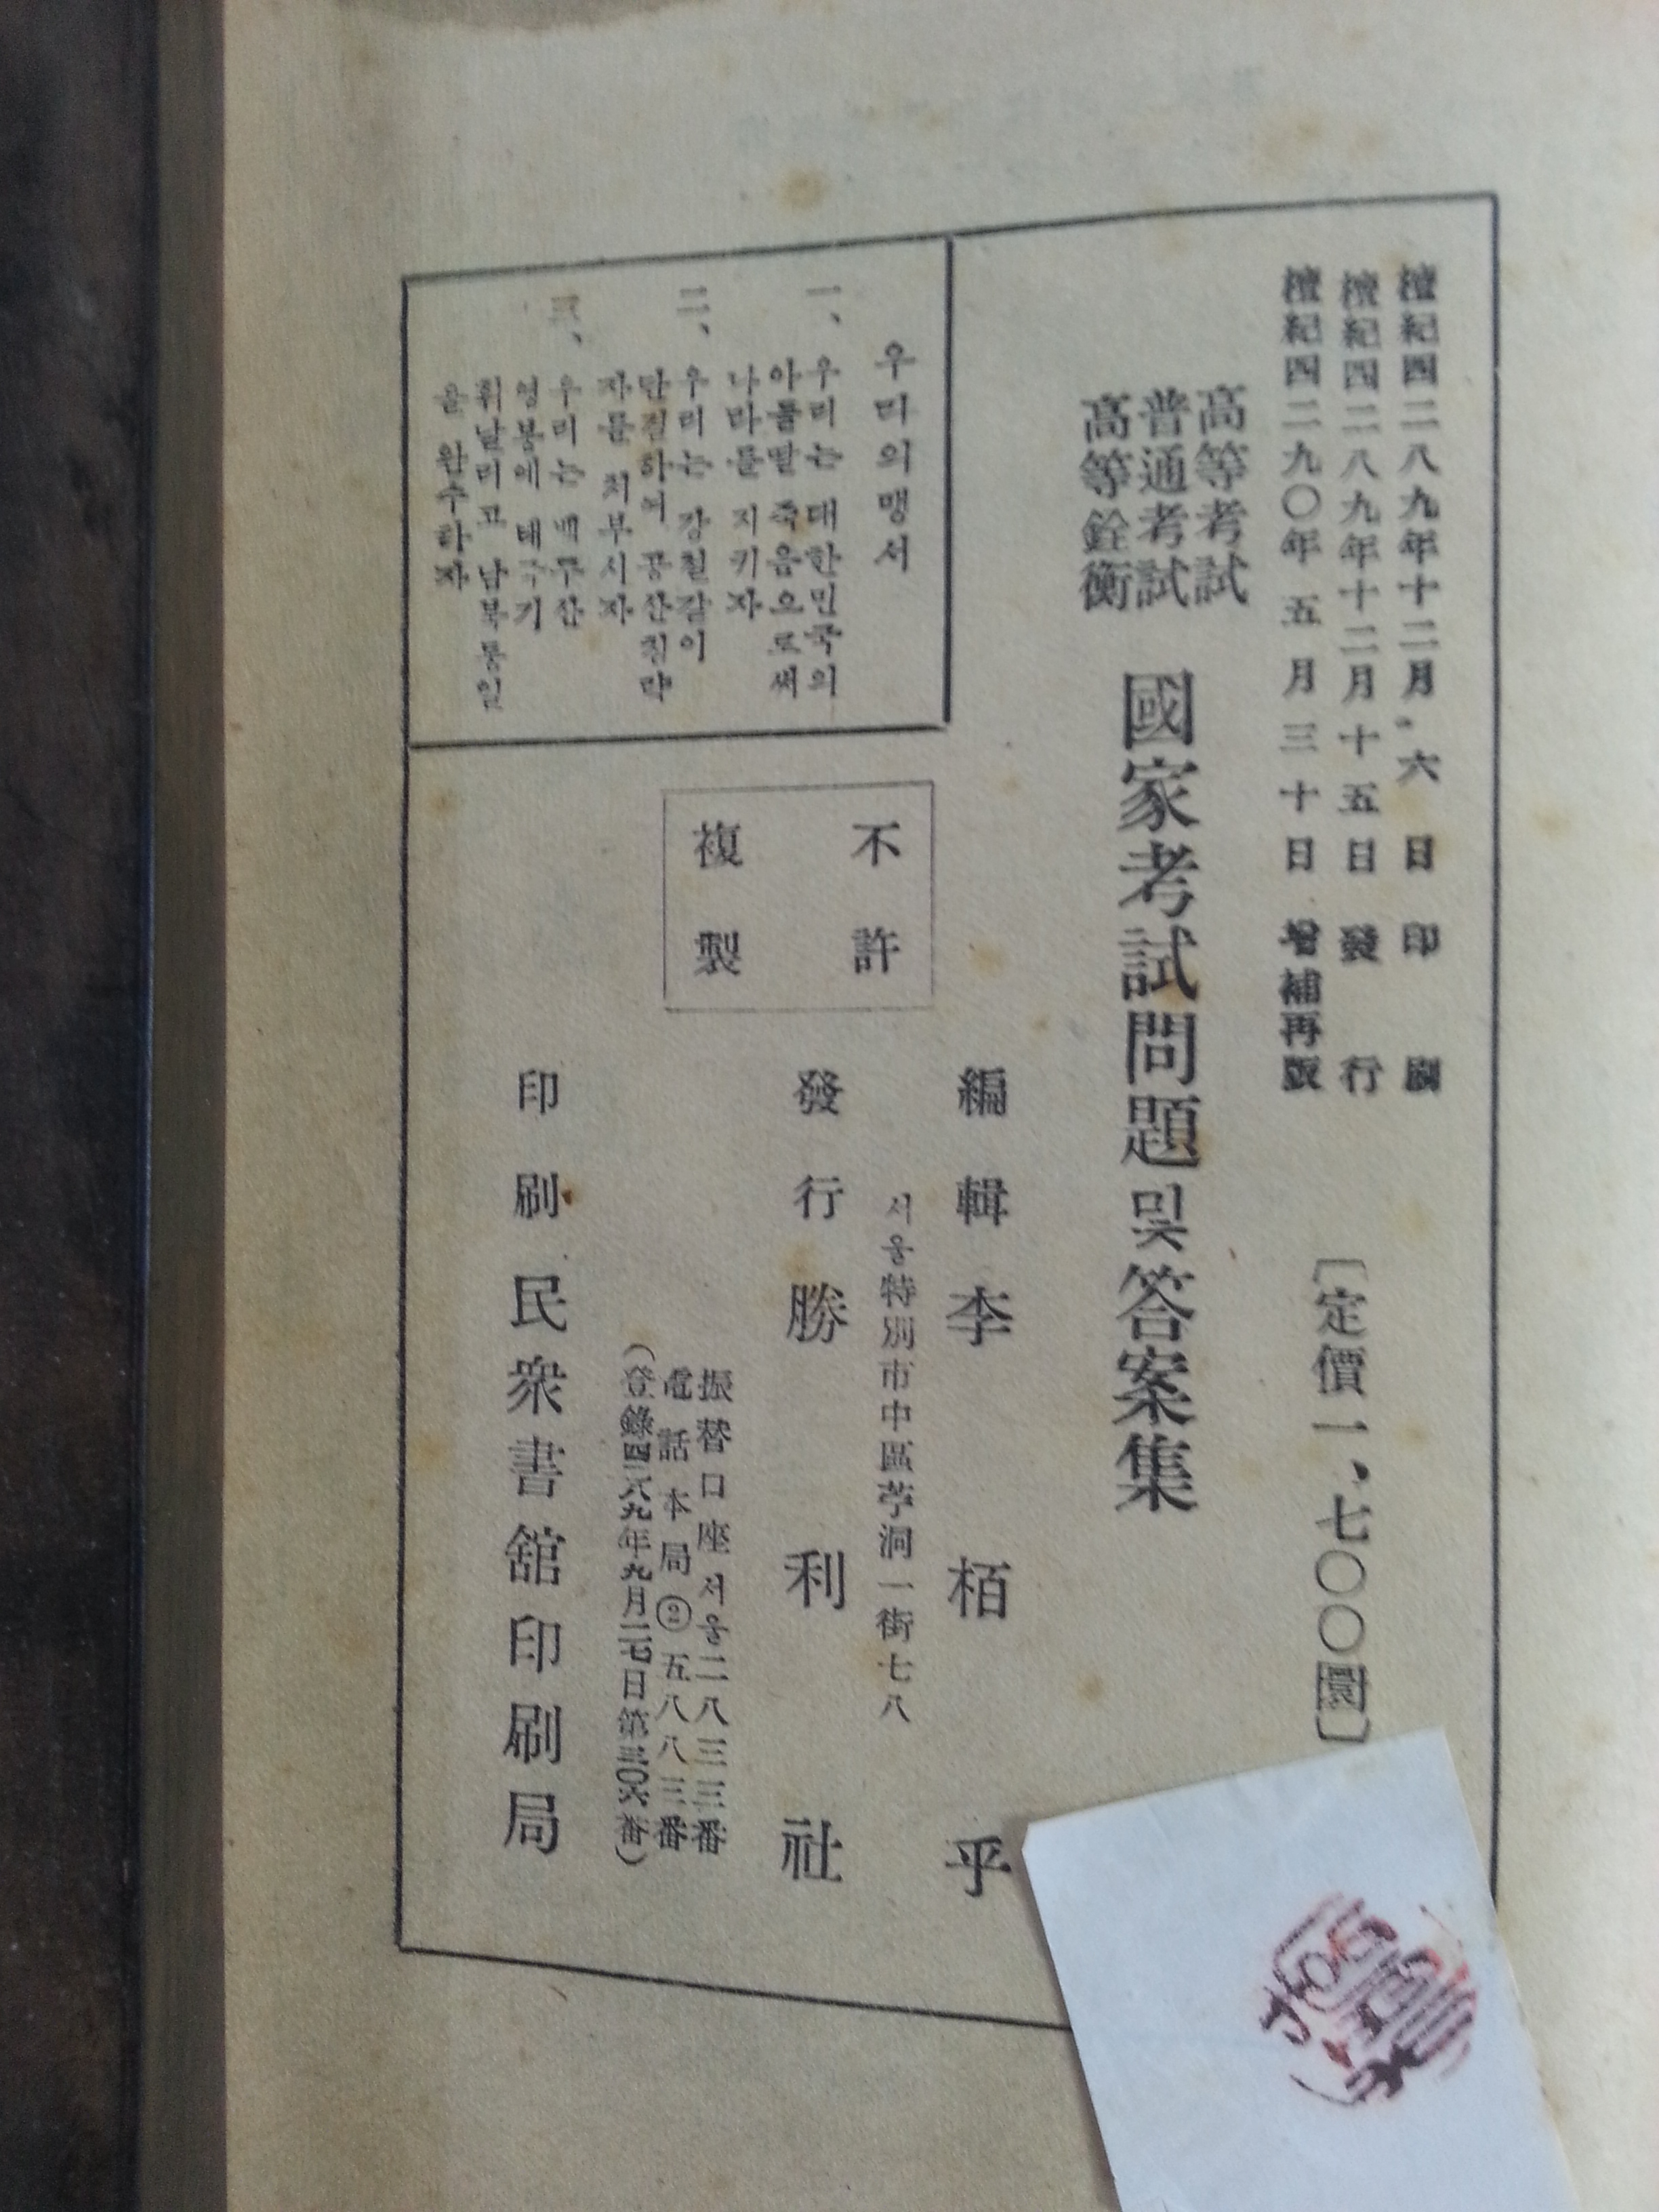 檀紀四二八九年十二月 六 日 印 刷
檀紀四二八九年十二月十五日 發 行
檀紀四二九〇年 五 月 三 十 日 增補再版
〔定價一、七〇〇圜〕
高等考試
普通考試
高等銓衡
國家考試問題및答案集
編 輯 李 栢 乎
서울特別市中區苧洞一街七八
發 行 勝 利 社
振替口座서울二八三三番
電話本局②五八八三番
(登錄四二八九年九月二七日第三〇六番)
印 刷 民衆書舘印刷局
不 許
複 製
우리의맹서
一、우리는 대한민국의
아들딸 죽음으로써
나라를 지키자
二、우리는 강철같이
단결하여 공산침략
자를 처부시자
三、우리는 백두산
영봉에 태극기
휘날리고 남북통일
을 완수하자